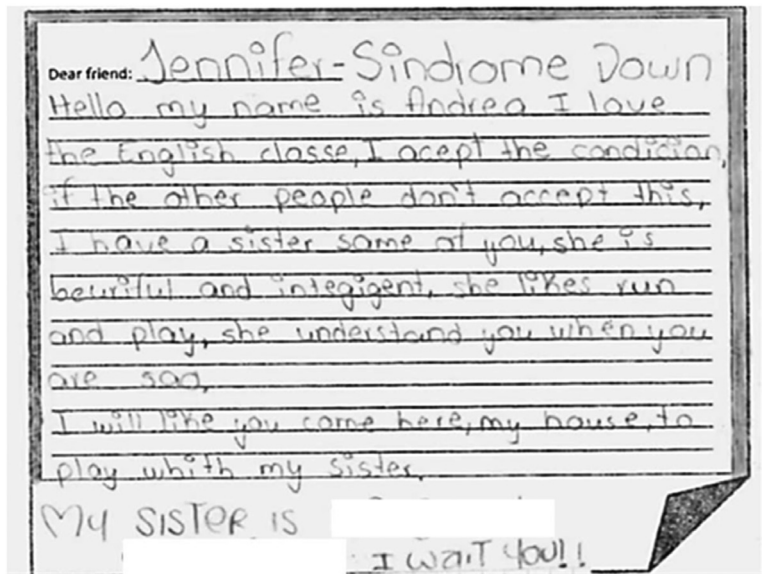 Dear friend: Jennifer-Sindrome Down
Hello my name is Andrea I love
the English classe, I acept the condician,
if the other people don't accept this,
I have a sister same of you, she is
beuriful and integigent, she likes run
and play, she understand you when you
are sad,
I will like you come here, my house, to
play whith my sister.
My SISTER IS
I WAIT YOU!!